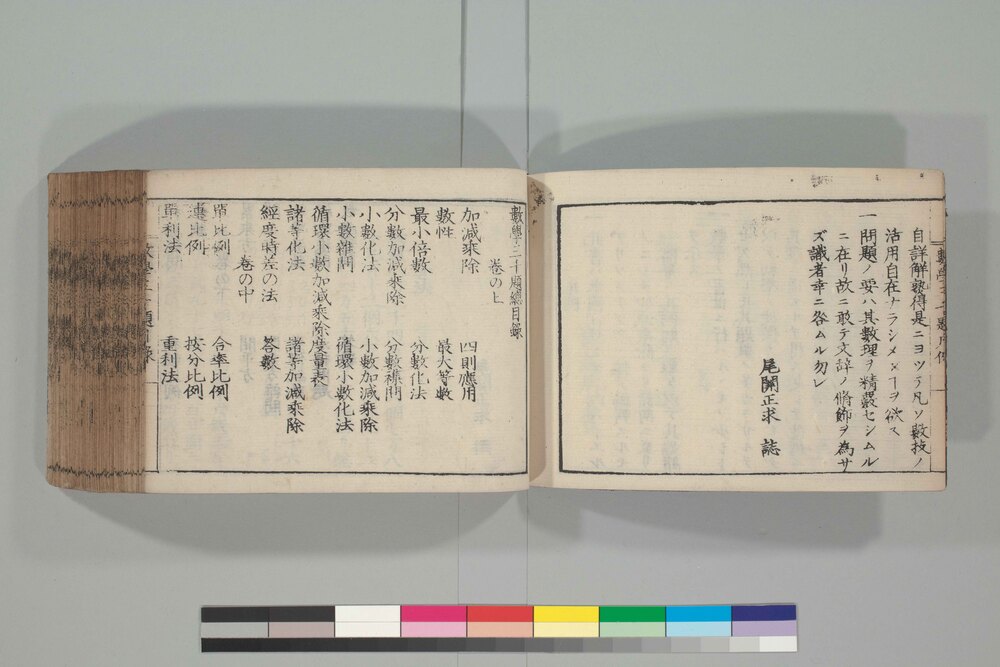 自詳解敎得是ニヨツテ凡ソ數技ノ
活用自在ナラシメメヿヲ欲ス
一問題ノ要ハ其數理ヲ精覈セシムル
ニ在リ故ニ敢テ文辞ノ脩飾ヲ為サ
ズ識者幸ニ咎ムル勿レ
尾關正求 誌
數學三千題總目録
卷の上
加減乘除 四則應用
數性 最大等數
最小倍數 分數化法
分數加減乘除 分數襍問
小數化法 小數加減乘除
小數雜問 循環小數化法
循環小數加減乘除 度量表
諸等化法 諸等加減乘除
經度時差の法 答數
卷の中
單比例 合率比例
連比例 按分比例
單利法 重利法